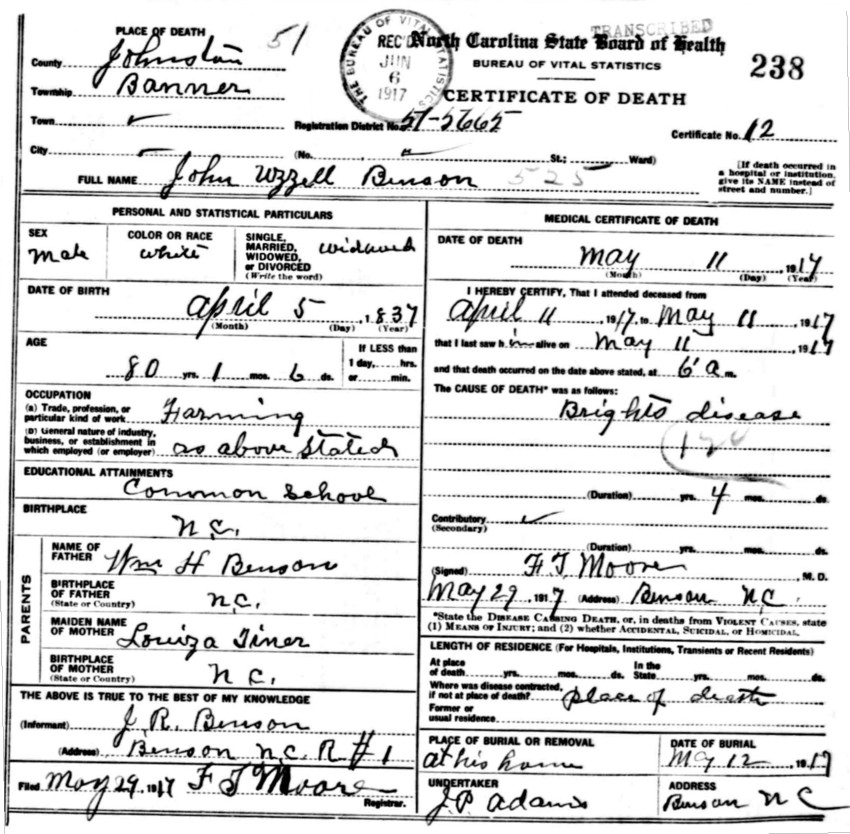 TRANSCRIBED
PLACE OF DEATH 51
County Johnston
Township Banner
Town ✓
City -
THE BUREAU OF VITAL STATISTICS
REC'D
JUN
6
1917
North Carolina State Board of Health
BUREAU OF VITAL STATISTICS
238
CERTIFICATE OF DEATH
Registration District No. 51-5665
Certificate No. 12
(No. St.; Ward)
[If death occurred in a hospital or institution, give its NAME instead of street and number.]
FULL NAME John Uzzell Benson 525
PERSONAL AND STATISTICAL PARTICULARS
SEX
Male
COLOR OR RACE
White
SINGLE, MARRIED, WIDOWED, or DIVORCED
(Write the word)
widowed
DATE OF BIRTH
April 5, 1837
(Month) (Day) (Year)
AGE
80 yrs. 1 mos. 6 ds.
If LESS than
1 day, hrs.
or min.
OCCUPATION
(a) Trade, profession, or
particular kind of work Farming
(b) General nature of industry,
business, or establishment in
which employed (or employer) as above stated
EDUCATIONAL ATTAINMENTS
Common School
BIRTHPLACE
N.C.
PARENTS
NAME OF
FATHER Wm H Benson
BIRTHPLACE
OF FATHER
(State or Country) N.C.
MAIDEN NAME
OF MOTHER Louiza Tiner
BIRTHPLACE
OF MOTHER
(State or Country) N C.
THE ABOVE IS TRUE TO THE BEST OF MY KNOWLEDGE
(Informant) J. R. Benson
(Address) Benson N.C. R #1
Filed May 29, 1917 F T Moore
Registrar.
MEDICAL CERTIFICATE OF DEATH
DATE OF DEATH
May 11, 1917
(Month) (Day) (Year)
I HEREBY CERTIFY, That I attended deceased from
April 11, 1917, to May 11, 1917
that I last saw him alive on May 11, 1917
and that death occurred on the date above stated, at 6 a m.
The CAUSE OF DEATH* was as follows:
Brights disease
120
(Duration) yrs. 4 mos. ds.
Contributory ✓
(Secondary)
(Duration) yrs. mos. ds.
(Signed) F T Moore, M. D.
May 29, 1917 (Address) Benson N.C.
*State the DISEASE CAUSING DEATH, or, in deaths from VIOLENT CAUSES, state
(1) MEANS OF INJURY; and (2) whether ACCIDENTAL, SUICIDAL, OR HOMICIDAL.
LENGTH OF RESIDENCE (For Hospitals, Institutions, Transients or Recent Residents)
At place
of death yrs. mos. ds.
In the
State yrs. mos. ds.
Where was disease contracted,
if not at place of death? place of death
Former or
usual residence
PLACE OF BURIAL OR REMOVAL
at his home
DATE OF BURIAL
May 12, 1917
UNDERTAKER
J.P. Adams
ADDRESS
Benson N C